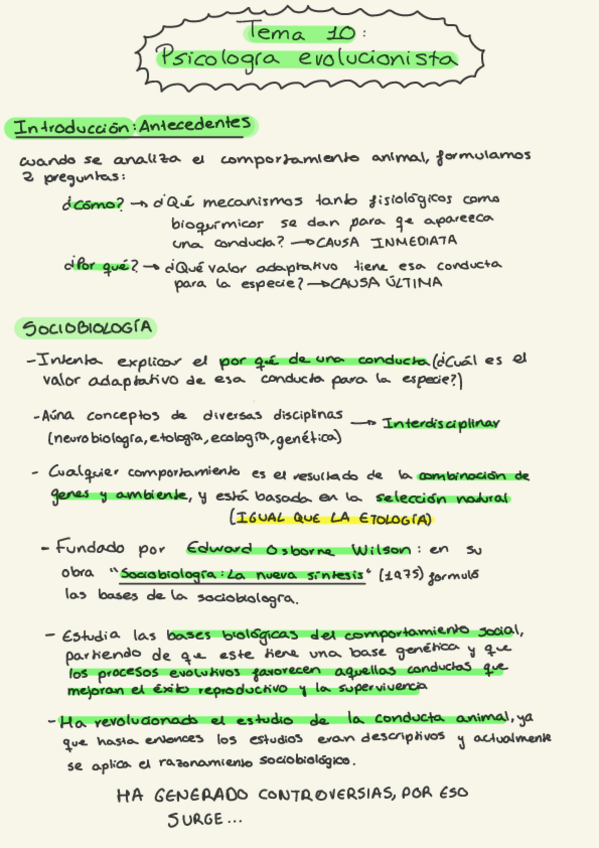 Tema 10:
Psicología evolucionista
Introducción: Antecedentes
cuando se analiza el comportamiento animal, formulamos
2 preguntas:
¿cómo? → ¿Qué mecanismos tanto fisiológicos como
bioquímicos se dan para qe aparezca
una conducta? → CAUSA INMEDIATA
¿Por qué? → ¿Qué valor adaptativo tiene esa conducta
para la especie? → CAUSA ÚLTIMA
SOCIOBIOLOGÍA
- Intenta explicar el por qué de una conducta (¿Cuál es el
valor adaptativo de esa conducta para la especie?)
- Aúna conceptos de diversas disciplinas → Interdisciplinar
(neurobiología, etología, ecología, genética)
- Cualquier comportamiento es el resultado de la combinación de
genes y ambiente, y está basada en la selección natural
(IGUAL QUE LA ETOLOGÍA)
- Fundado por Edward Osborne Wilson: en su
obra "Sociobiología: La nueva síntesis" (1975) formuló
las bases de la sociobiología.
- Estudia las bases biológicas del comportamiento social,
partiendo de que este tiene una base genética y que
los procesos evolutivos favorecen aquellas conductas que
mejoran el éxito reproductivo y la supervivencia
- Ha revolucionado el estudio de la conducta animal, ya
que hasta entonces los estudios eran descriptivos y actualmente
se aplica el razonamiento sociobiológico.
HA GENERADO CONTROVERSIAS, POR ESO
SURGE...